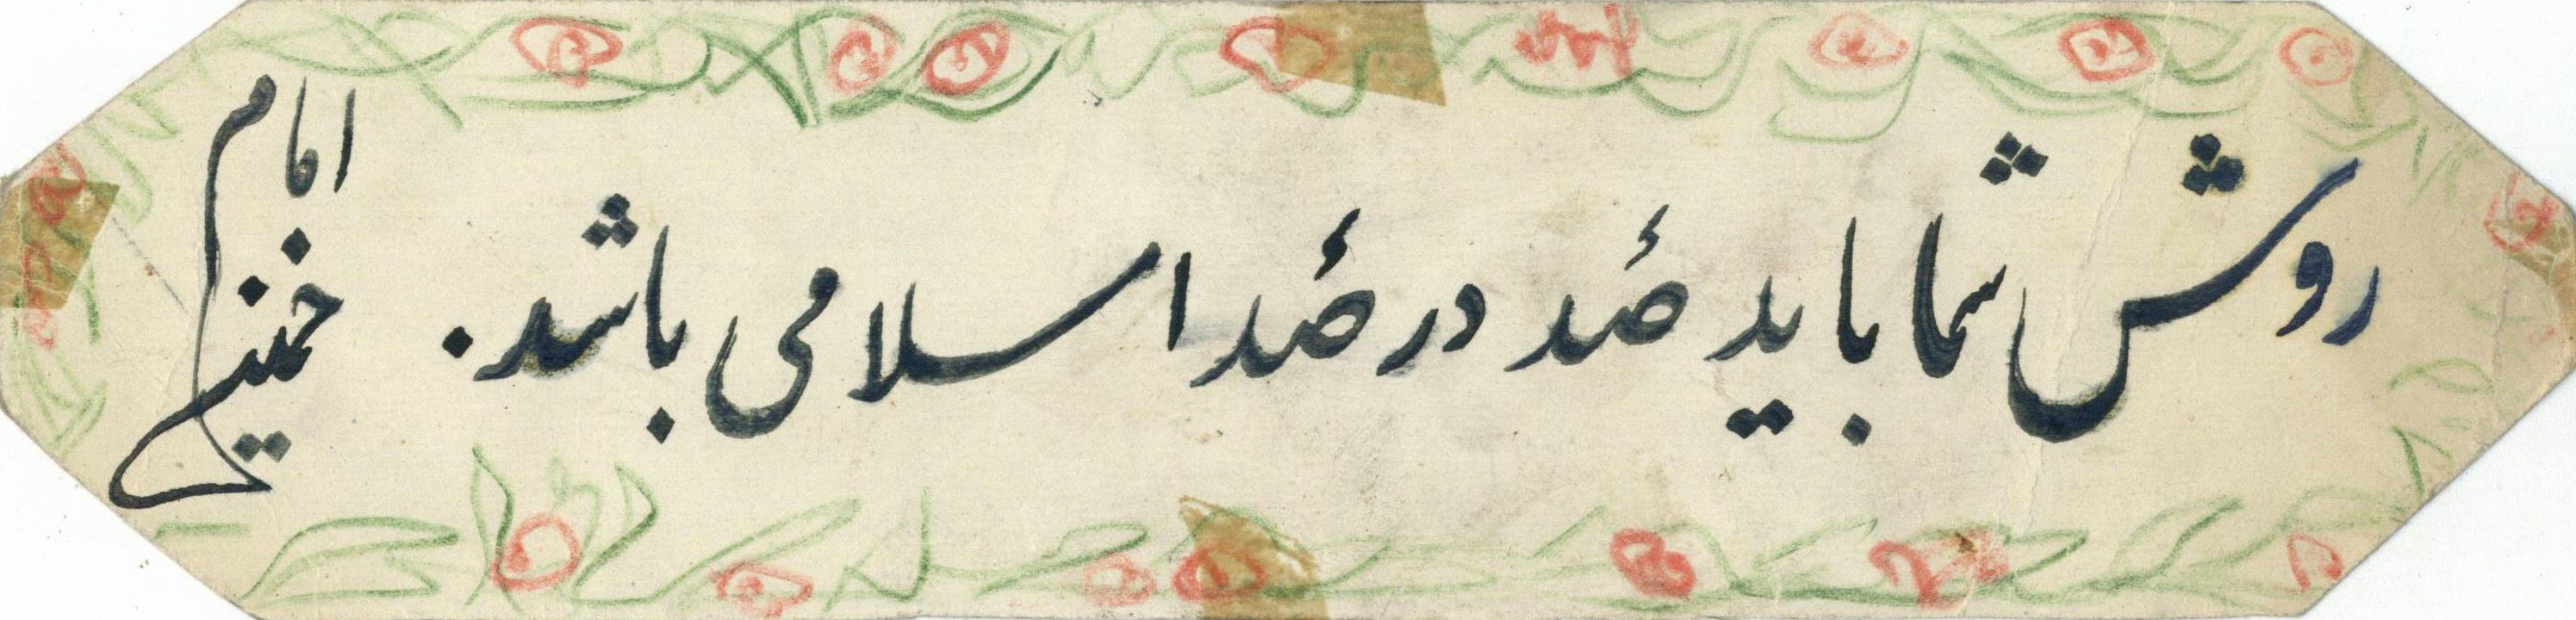 روش شما باید صد در صد اسلامی باشد.
امام
خمینی